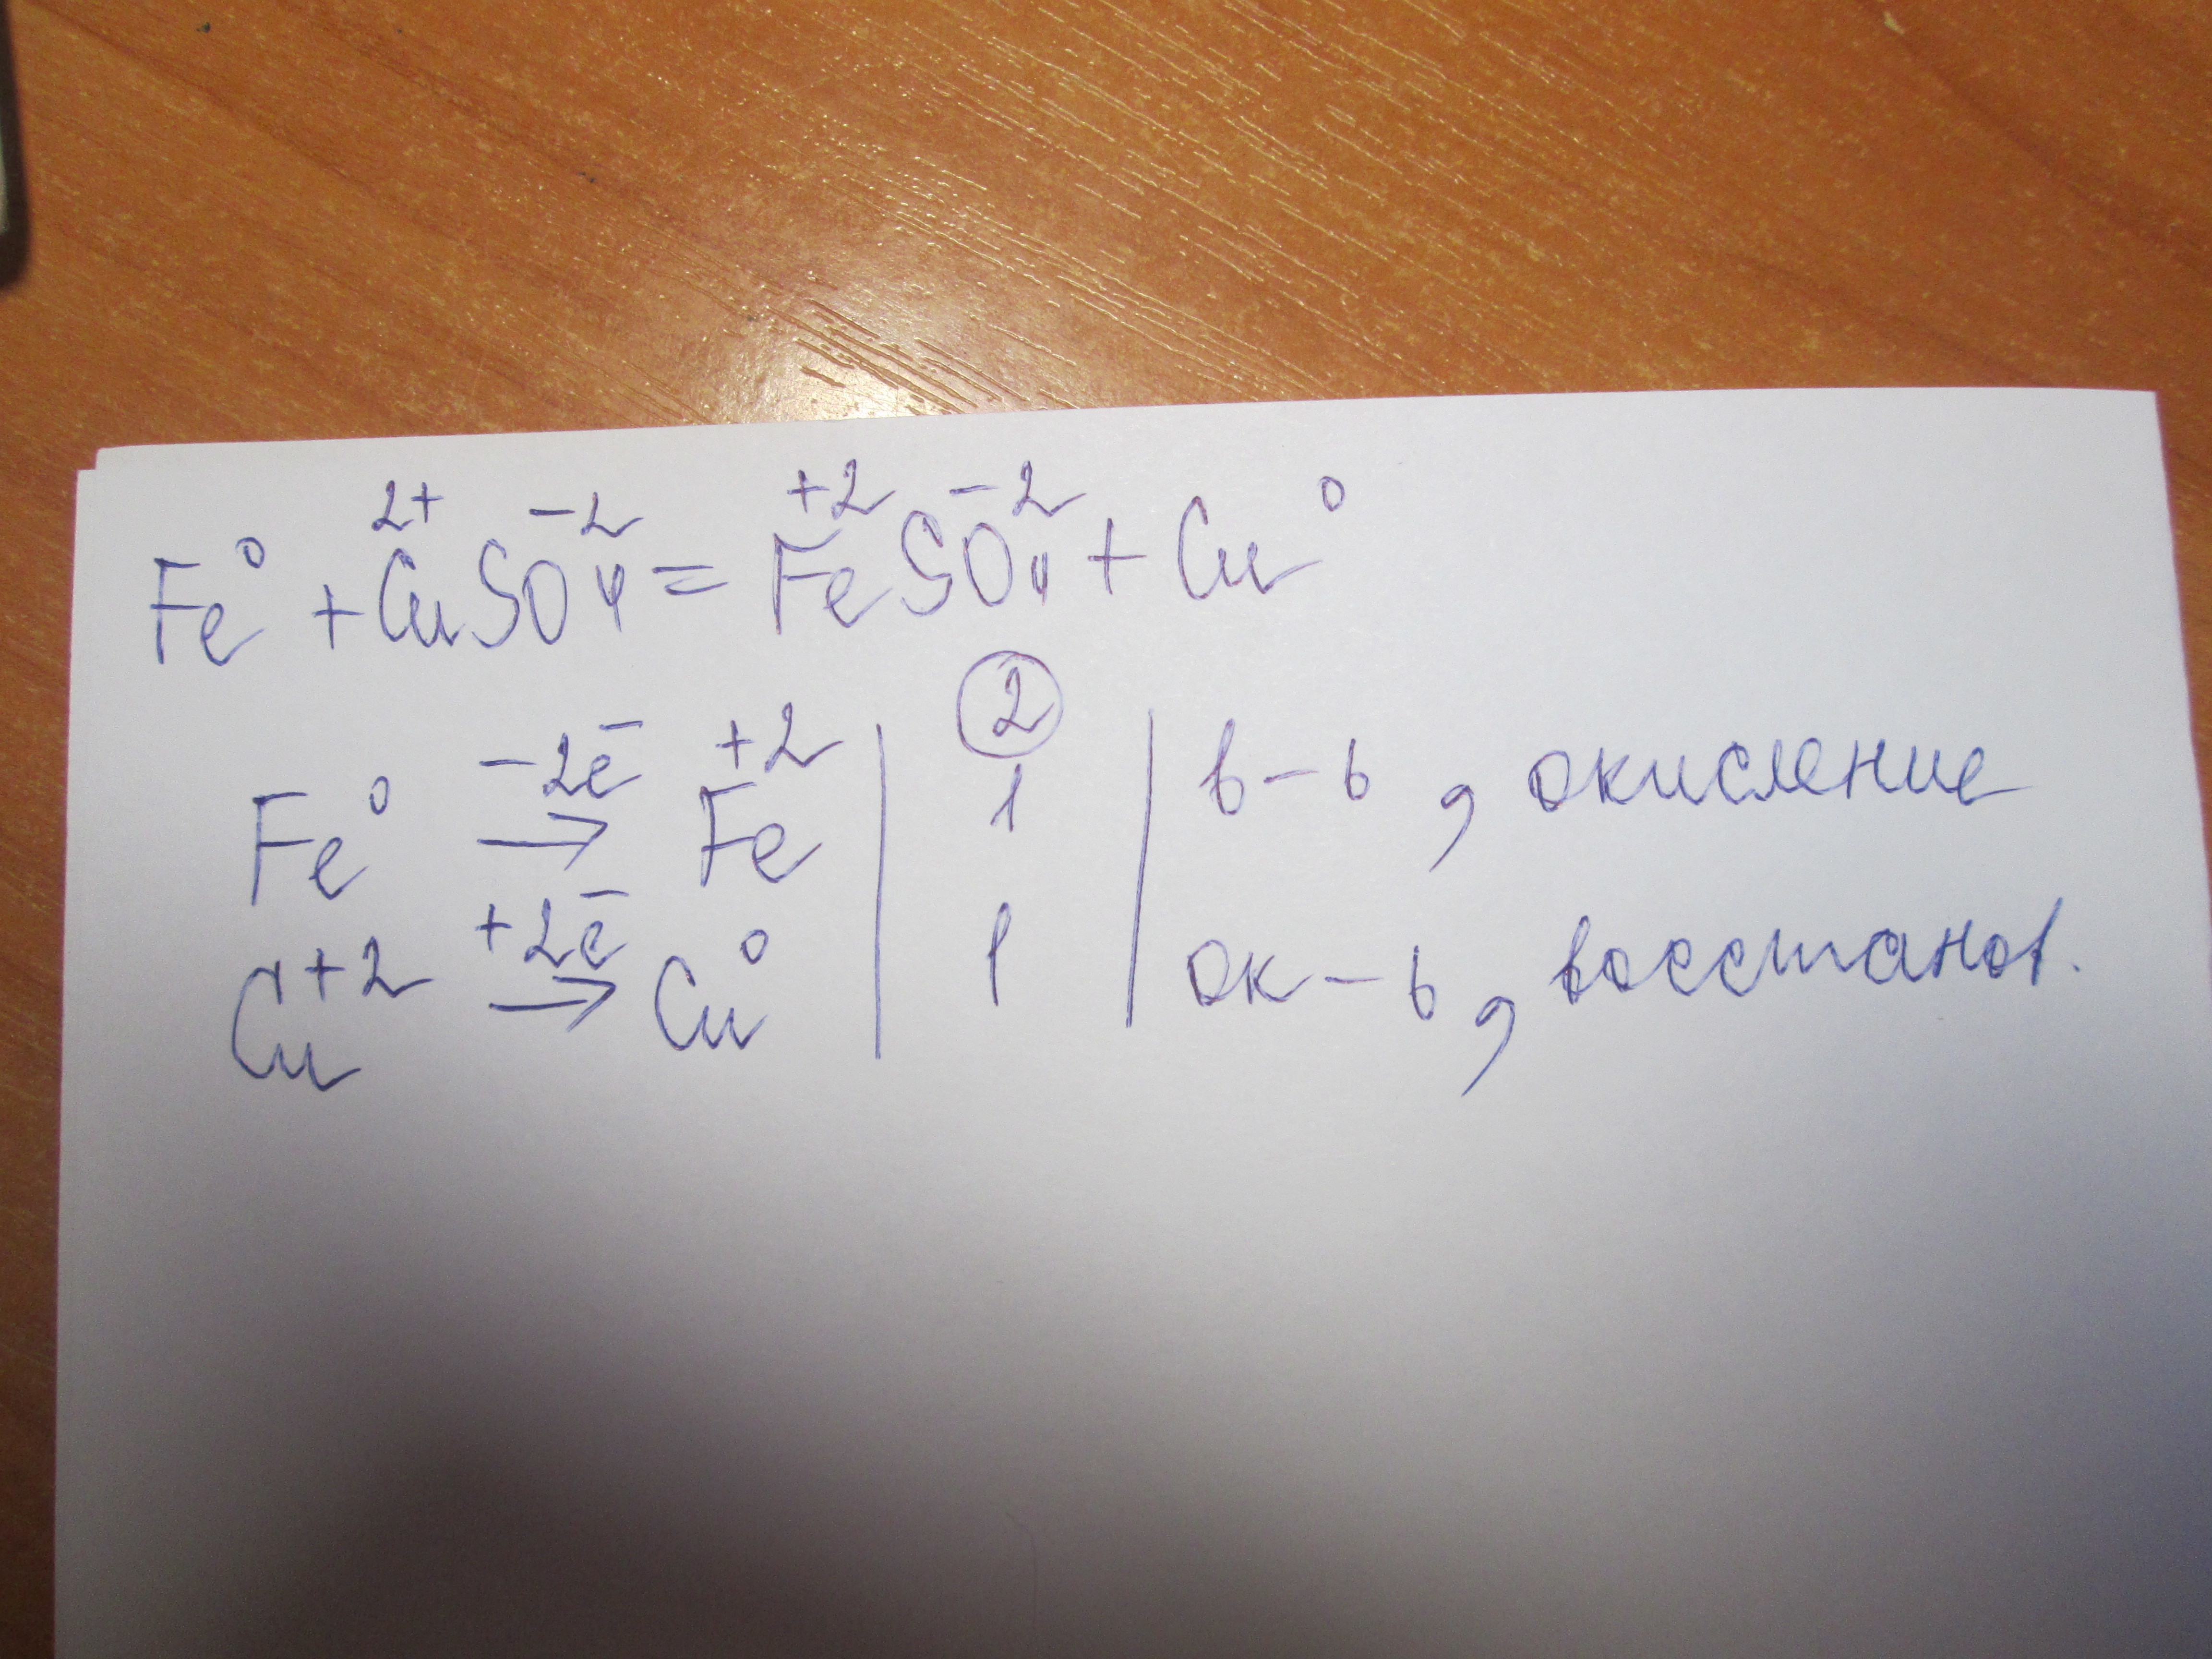 Fe⁰ + Cu²⁺SO₄⁻² = Fe⁺²SO₄⁻² + Cu⁰
②
Fe⁰ −2e⁻ → Fe⁺² | 1 | в-ь, окисление
Cu⁺² +2e⁻ → Cu⁰ | 1 | ок-ь, восстанов.